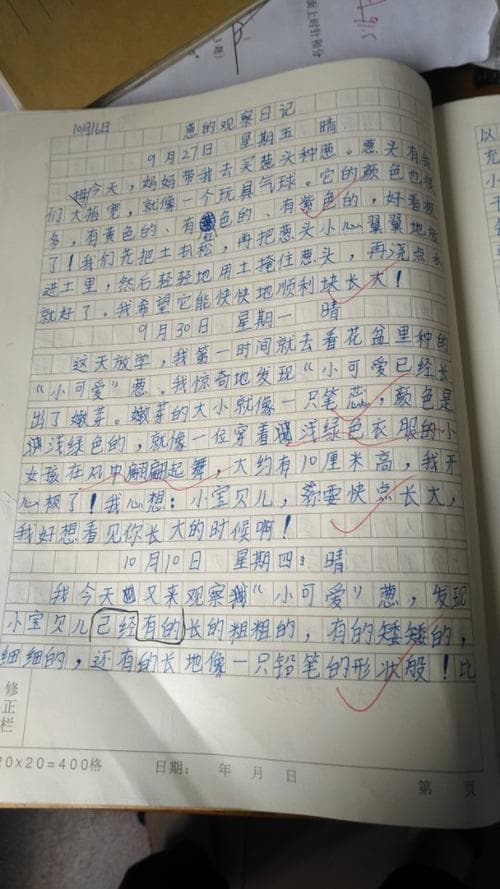 10月16日 葱的观察日记
9月27日 星期五 晴
今天，妈妈带我去买葱头种葱。葱头有我
们大拇指宽，就像一个玩具气球。它的颜色也很
多，有黄色的、有红色的、有紫色的，好看极
了！我们先把土扒松，再把葱头小心翼翼地放
进土里，然后轻轻地用土掩住葱头，再浇点水
就好了。我希望它能快快地顺利块长大！
9月30日 星期一 晴
这天放学，我第一时间就去看花盆里种的
“小可爱”葱。我惊奇地发现“小可爱已经长
出了嫩芽。嫩芽的大小就像一只笔芯，颜色是
浅绿色的，就像一位穿着浅绿色衣服的小
女孩在风中翩翩起舞，大约有10厘米高，我开
心极了！我心想：小宝贝儿，要快点长大，
我好想看见你长大的时候啊！
10月10日 星期四：晴
我今天又来观察“小可爱”葱，发现
小宝贝儿己经有的长的粗粗的，有的矮矮的，
细细的，还有的长地像一只铅笔的形状般！比
修正栏
20×20=400格 日期： 年 月 日 第 页